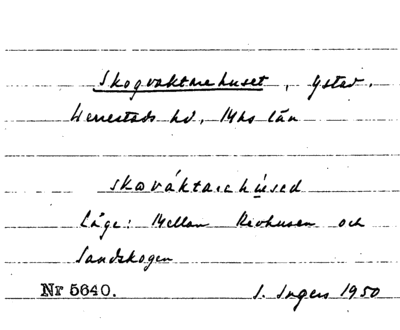 Skogvaktarehuset, Ystad.
Herrestads hd, Mhs län
skǫváktarehúsed
Läge: Mellan Revhusen och
Sandskogen
Nr 5640. S. Ingers 1950